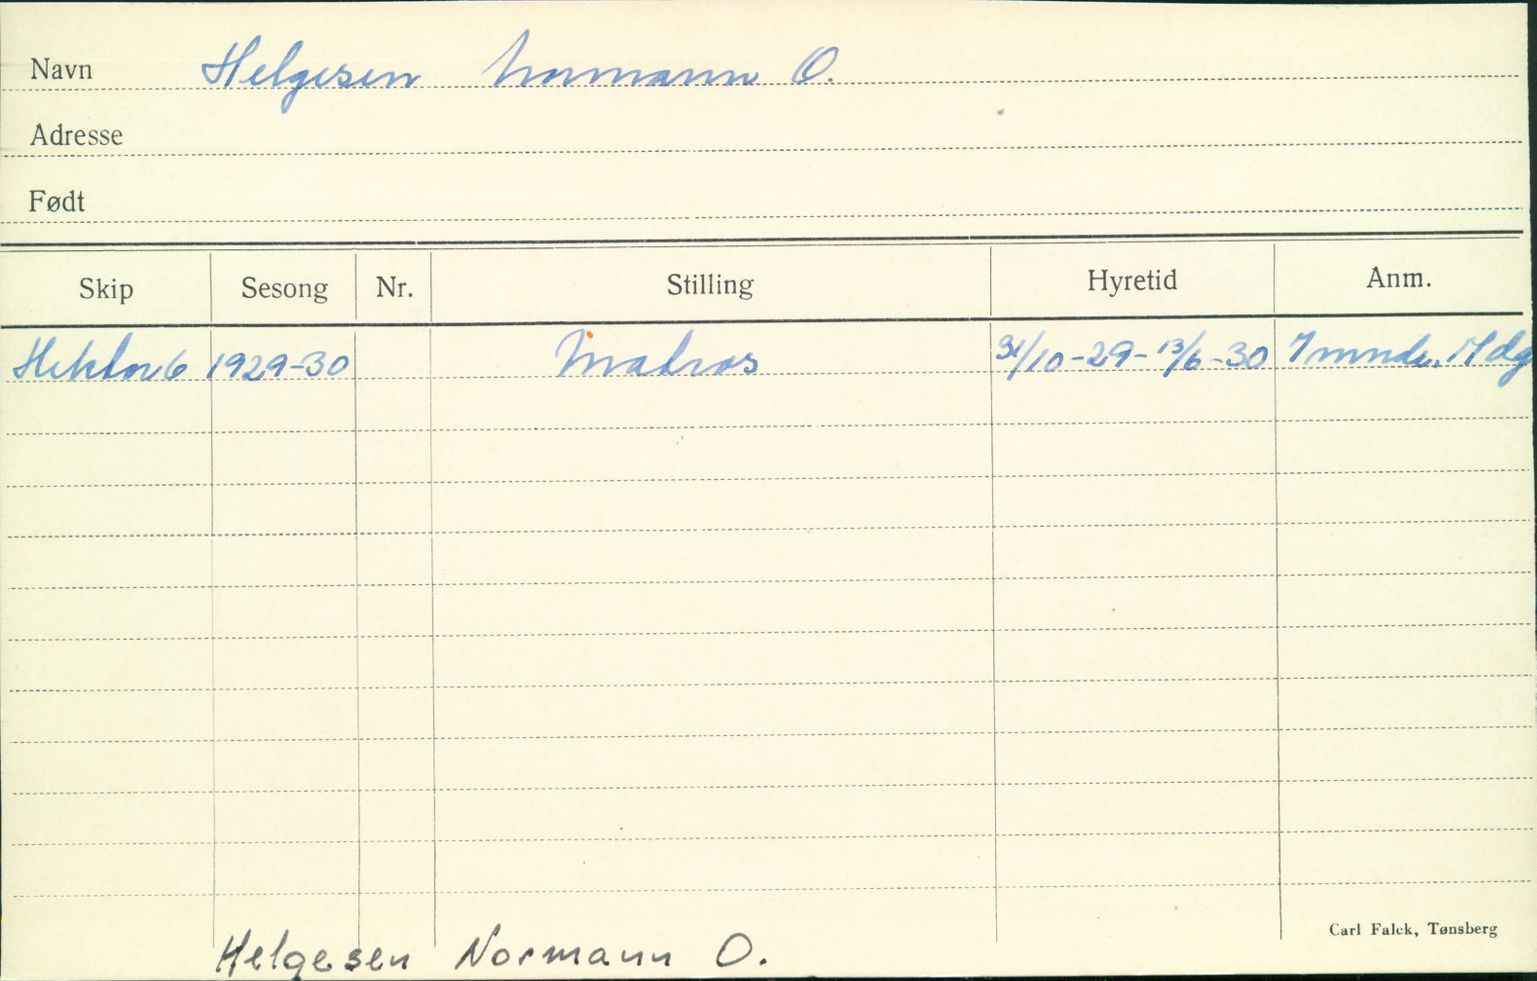 Navn Helgesen Normann O.
Adresse
Født
Skip Sesong Nr. Stilling Hyretid Anm.
Hektor 6 1929-30 Matros 31/10-29-13/6-30 7 mndr. 14 dg
Helgesen Normann O.
Carl Falck, Tønsberg